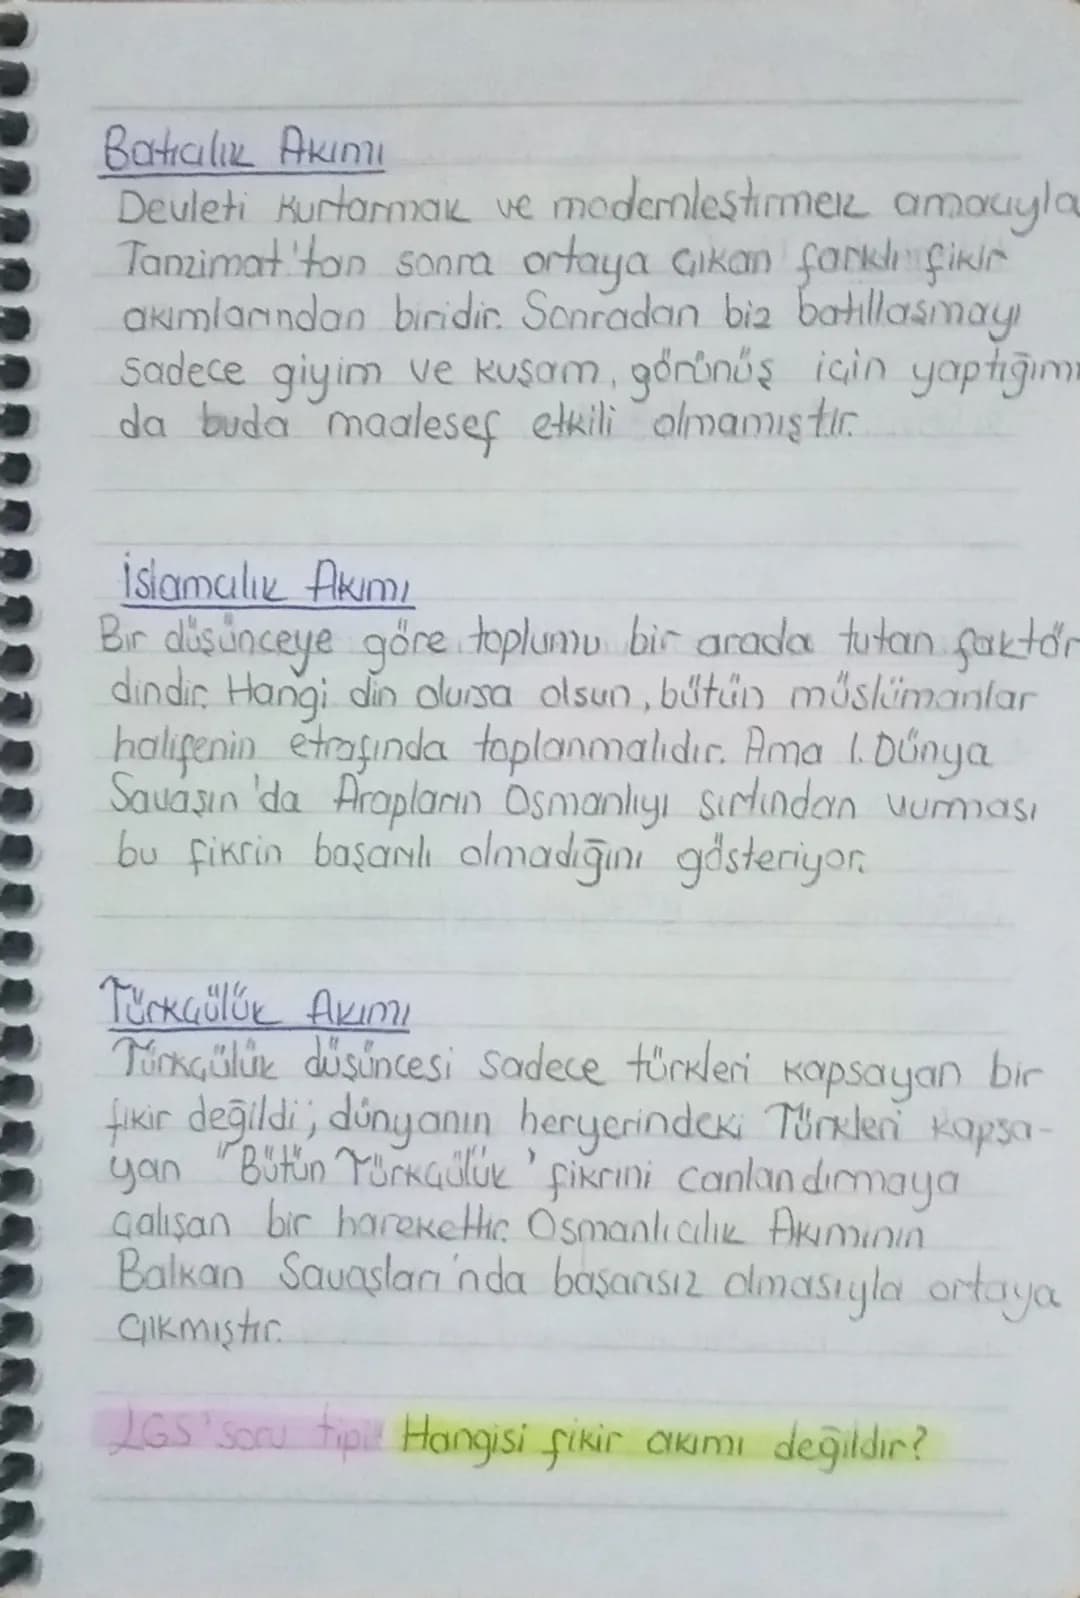 Batıcılık Akımı
Devleti kurtarmak ve modernleştirmek amacıyla
Tanzimat'tan sonra ortaya çıkan farklı fikir
akımlarından biridir. Sonradan biz batıllaşmayı
sadece giyim ve kuşam, görünüş için yaptığımı
da buda maalesef etkili olmamıştır.
İslamcılık Akımı
Bir düşünceye göre toplumu bir arada tutan faktör
dindir. Hangi din olursa olsun, bütün müslümanlar
halifenin etrafında toplanmalıdır. Ama 1. Dünya
Savaşın'da Arapların Osmanlıyı sırtından vurması
bu fikrin başarılı olmadığını gösteriyor.
Türkçülük Akımı
Türkçülük düşüncesi sadece türkleri kapsayan bir
fikir değildi; dünyanın heryerindeki Türkleri kapsa-
yan "Bütün Türkçülük' fikrini canlandırmaya
çalışan bir harekettir. Osmanlıcılık Akımının
Balkan Savaşları'nda başarısız olmasıyla ortaya
çıkmıştır.
LGS' soru tipi! Hangisi fikir akımı değildir?